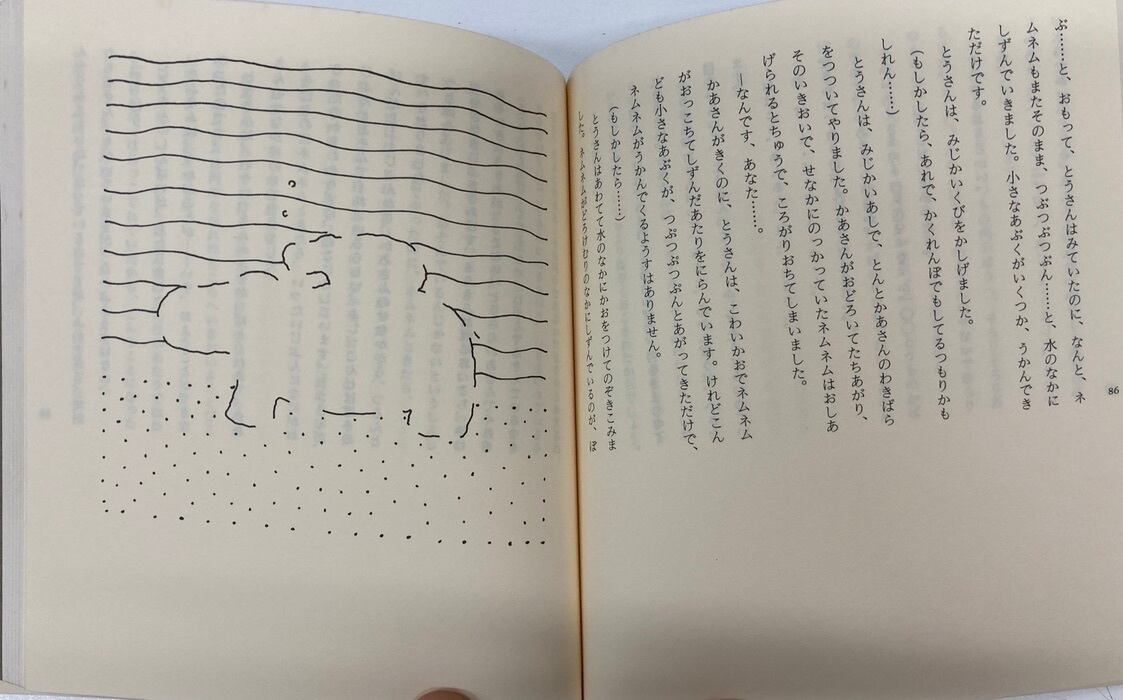 ぶ……と、おもって、とうさんはみていたのに、なんと、ネ
ムネムもまたそのまま、つぷつぷつぷん……と、水のなかに
しずんでいきました。小さなあぶくがいくつか、うかんでき
ただけです。
とうさんは、みじかいくびをかしげました。
(もしかしたら、あれで、かくれんぼでもしてるつもりかも
しれん……)
とうさんは、みじかいあしで、とんとかあさんのわきばら
をつついてやりました。かあさんがおどろいてたちあがり、
そのいきおいで、せなかにのっかっていたネムネムはおしあ
げられるとちゅうで、ころがりおちてしまいました。
―なんです、あなた……。
かあさんがきくのに、とうさんは、こわいかおでネムネム
がおっこちてしずんだあたりをにらんでいます。けれどこん
ども小さなあぶくが、つぷつぷつぷんとあがってきただけで、
ネムネムがうかんでくるようすはありません。
(もしかしたら……)
とうさんはあわてて水のなかにかおをつけてのぞきこみま
した。ネムネムがどろけむりのなかにしずんでいるのが、ぼ
86